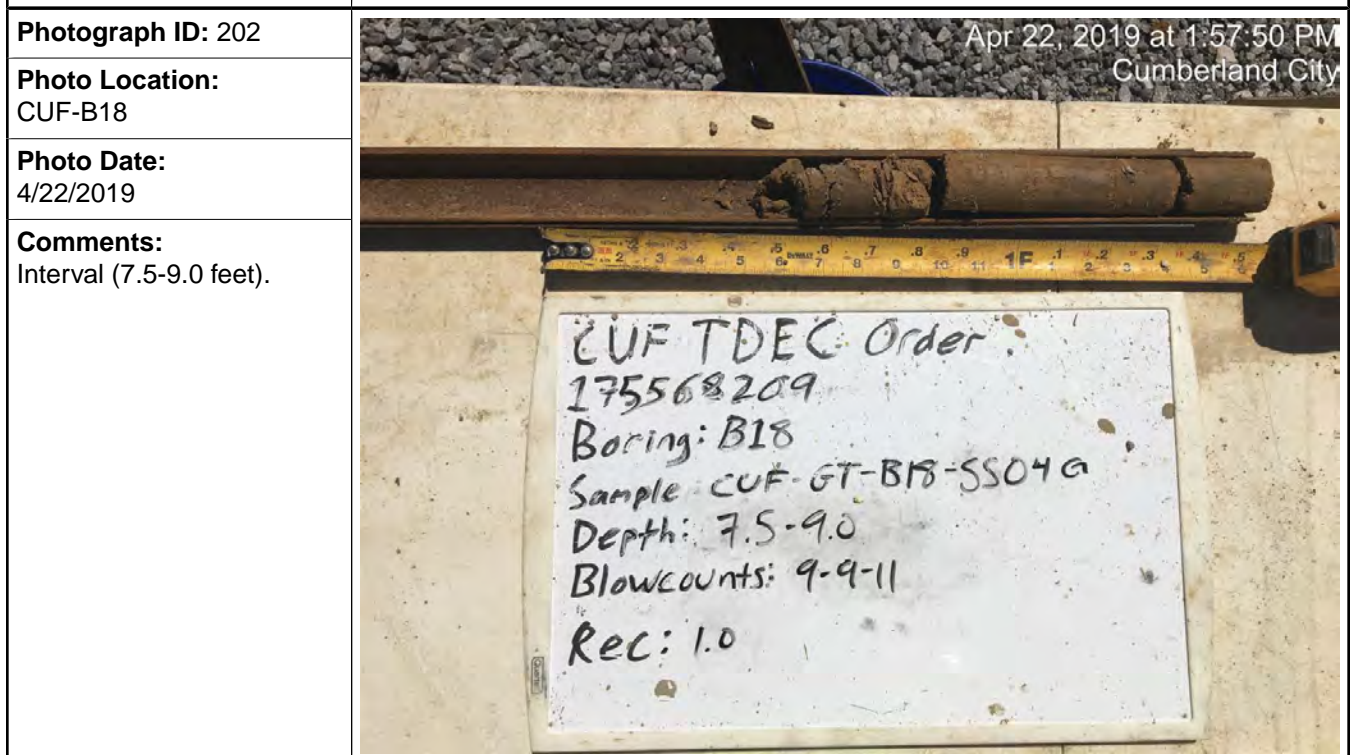 Photograph ID: 202
Photo Location:
CUF-B18
Photo Date:
4/22/2019
Comments:
Interval (7.5-9.0 feet).
Apr 22, 2019 at 1:57:50 PM
Cumberland City
CUF TDEC Order
175568209
Boring: B18
Sample: CUF-GT-B18-SS04G
Depth: 7.5-9.0
Blowcounts: 9-9-11
Rec: 1.0